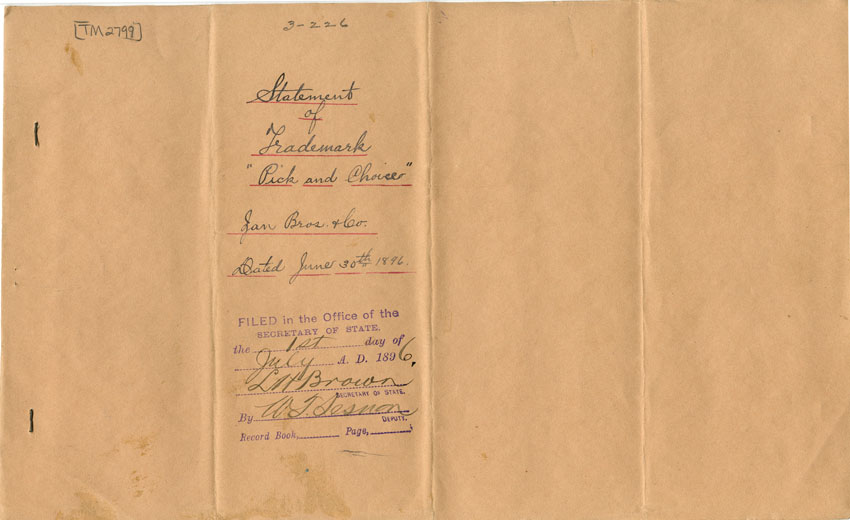 [TM2799]
3-226
Statement
of
Trademark
"Pick and Choice"
Zan Bros. & Co.
Dated June 30th 1896.
FILED in the Office of the
SECRETARY OF STATE,
the 1st day of
July A. D. 1896,
L H Brown
SECRETARY OF STATE.
By W. T. Sesnon
DEPUTY.
Record Book, Page,